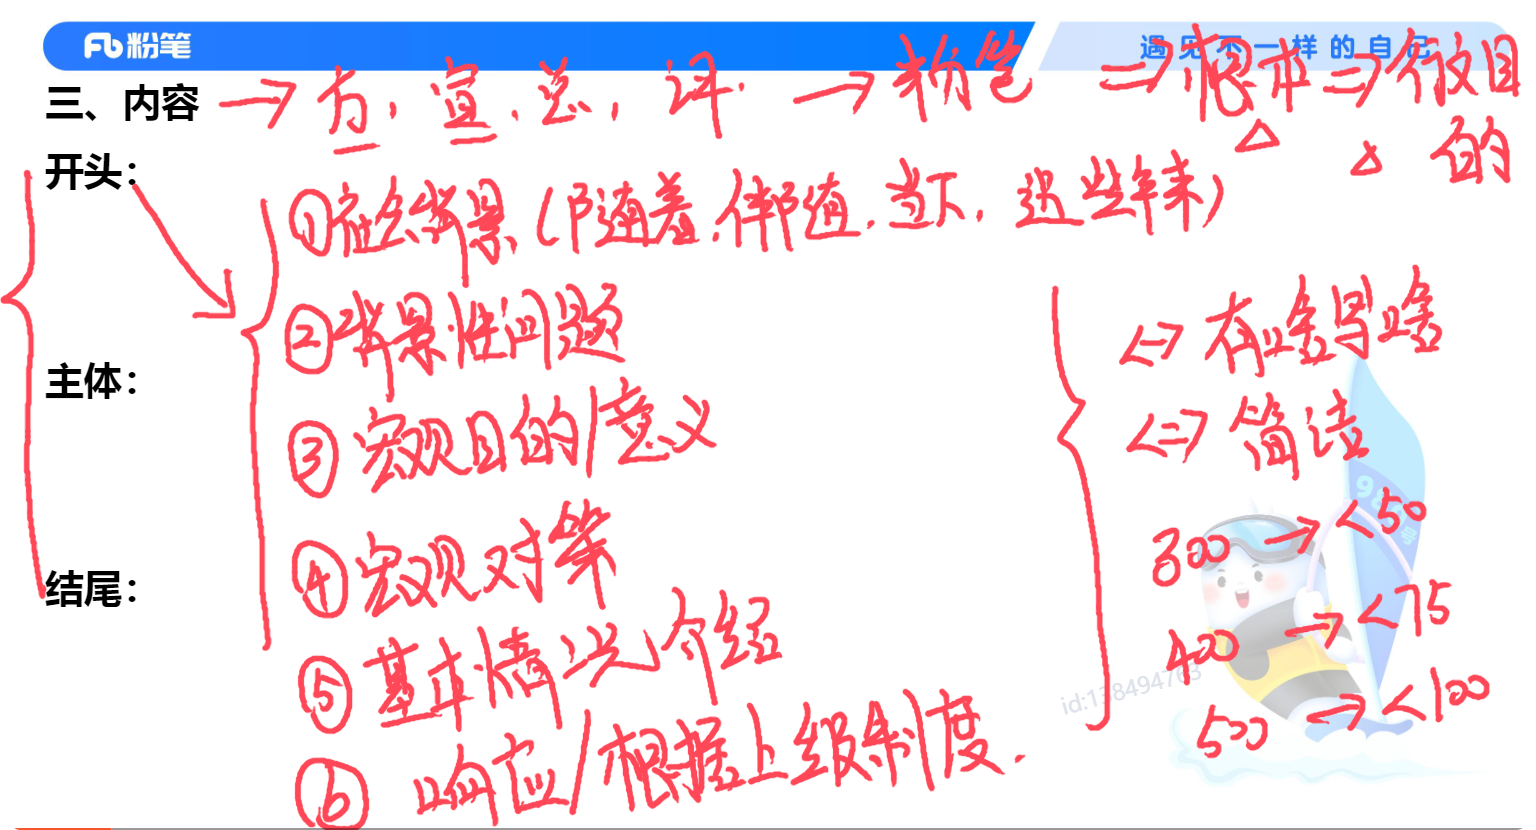 粉笔
遇见不一样的自己
三、内容 → 方，宣，总，评. → 粉笔 => 根本 => 行文目的
开头：
① 社会背景（随着，伴随，当下，近些年来）
② 背景性问题
③ 宏观目的/意义
④ 宏观对策
⑤ 基本情况介绍
⑥ 响应/根据上级制度.
主体：
结尾：
<=> 有啥写啥
<=> 简洁
300 → <50
400 → <75
500 → <100
id:138494763